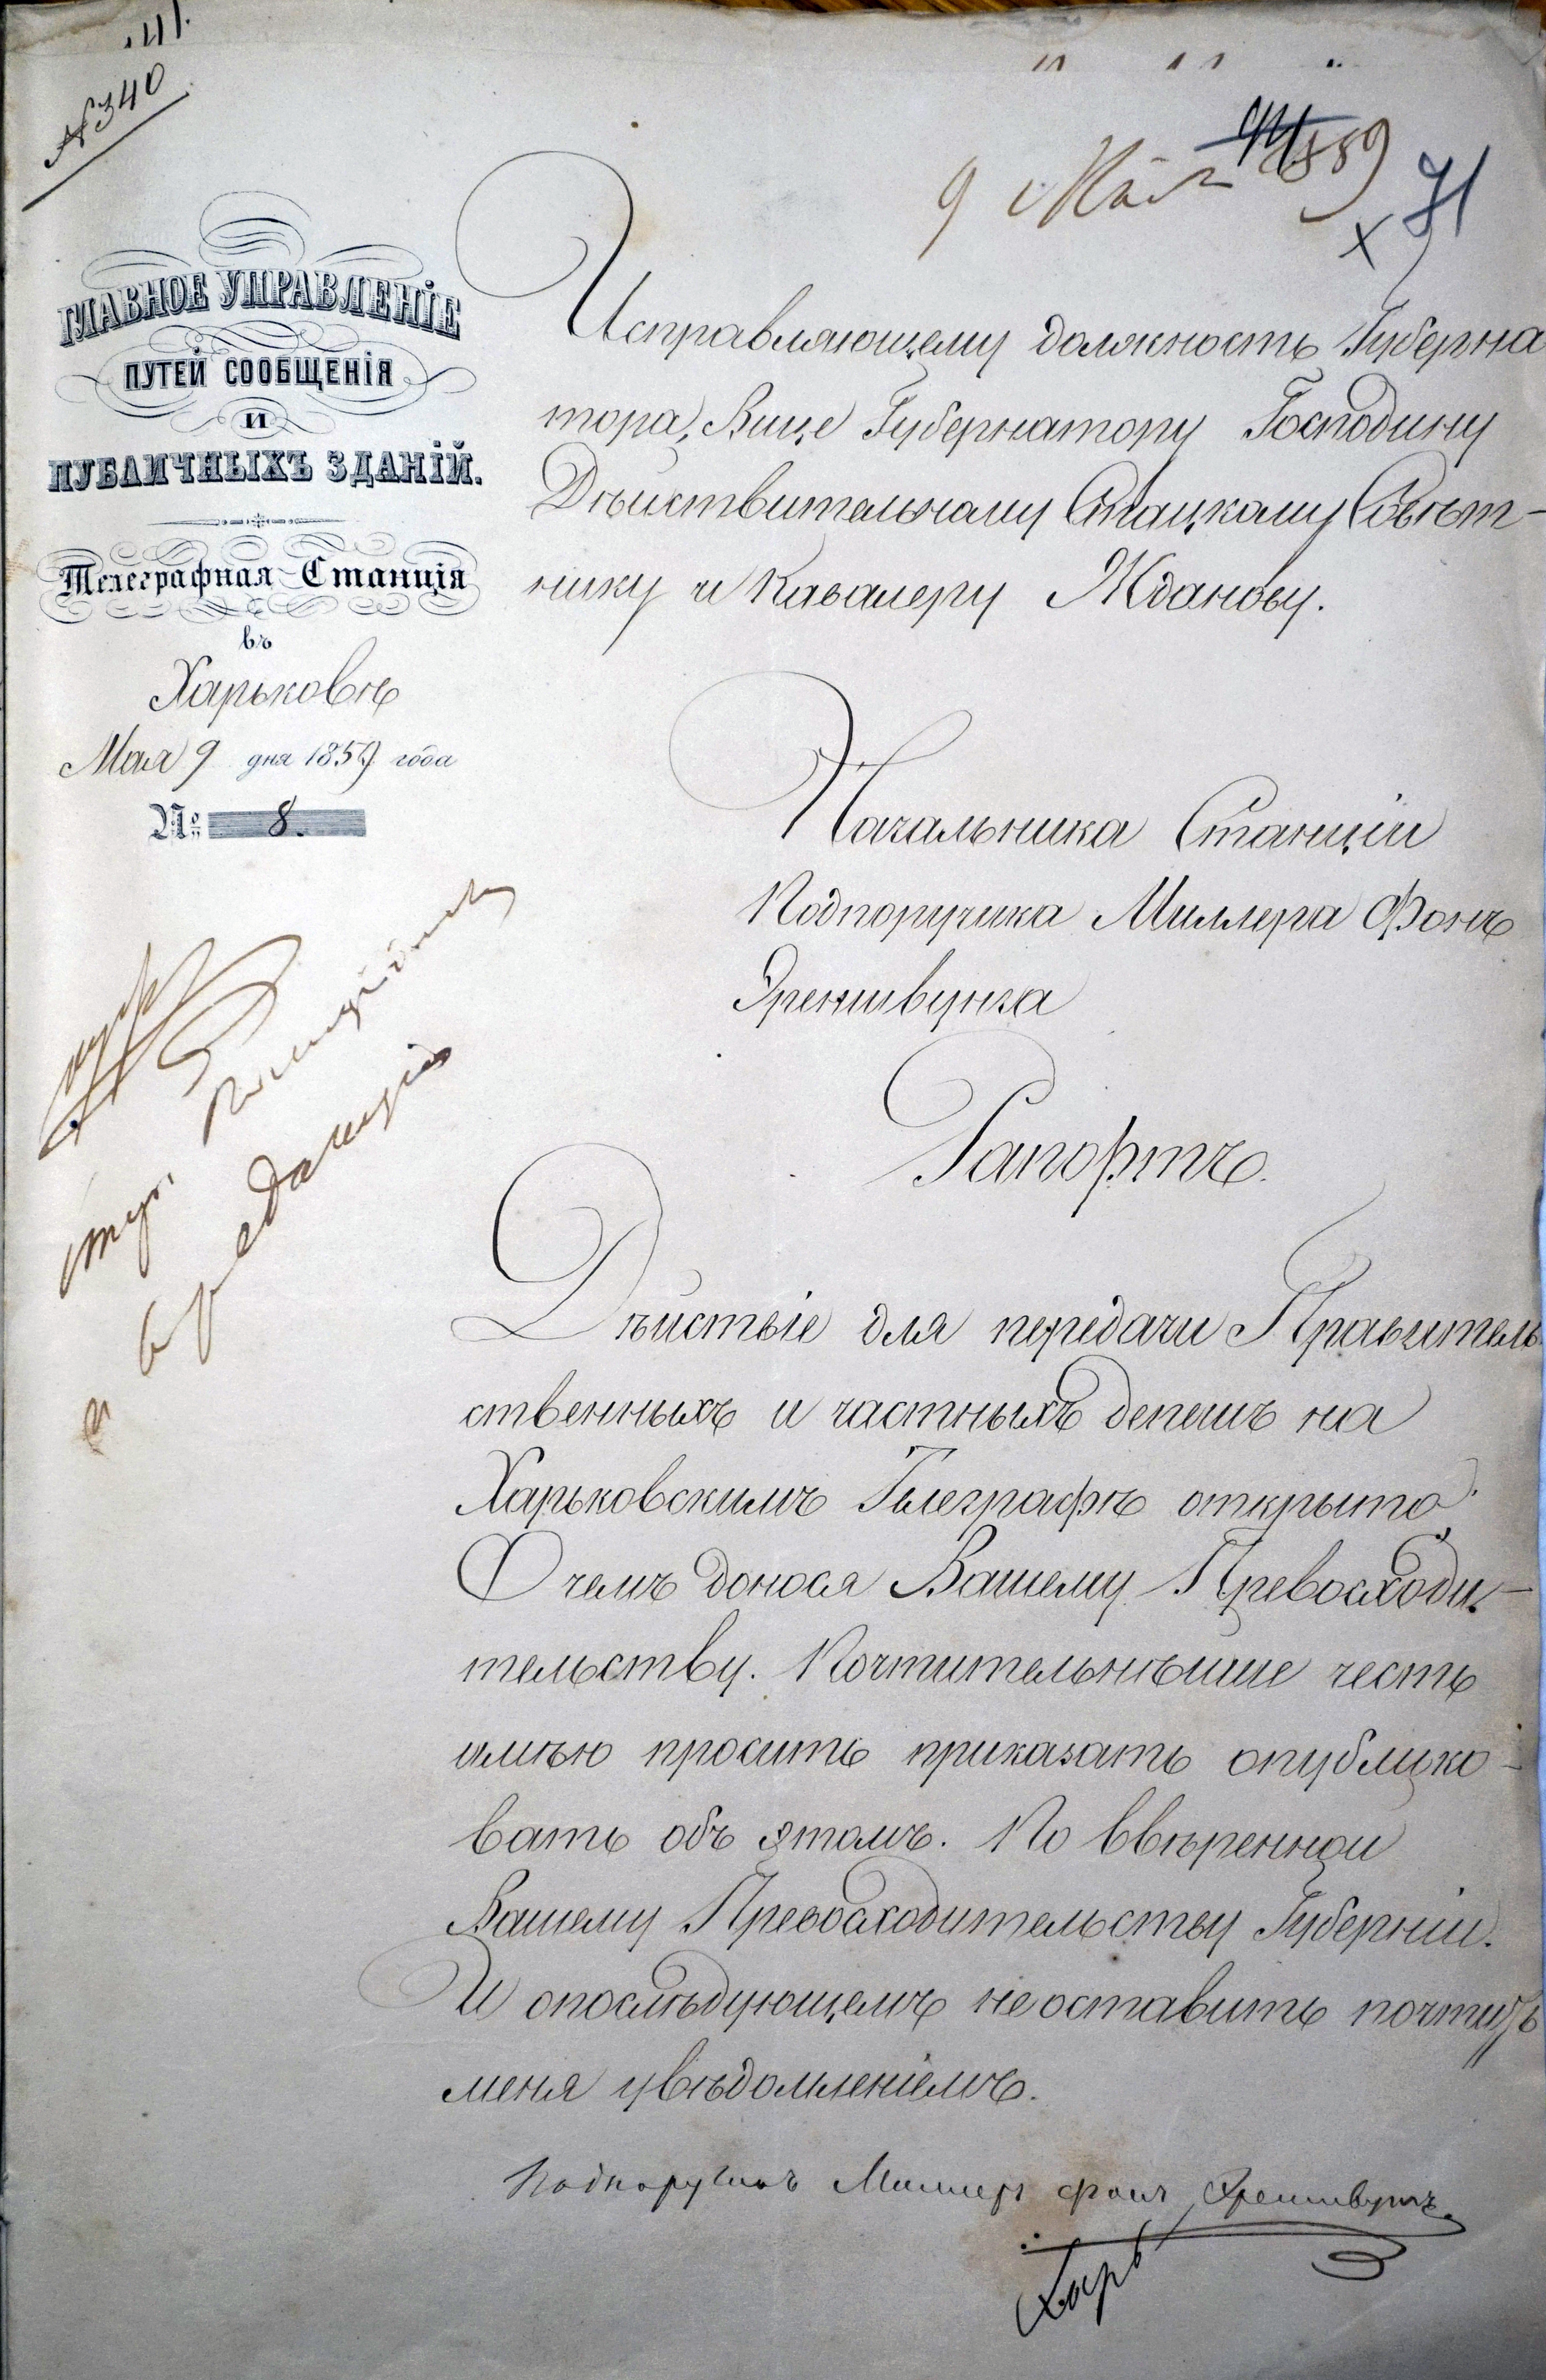 41.
№ 340
9 Мая 1859
71
ГЛАВНОЕ УПРАВЛЕНІЕ
ПУТЕЙ СООБЩЕНІЯ
И
ПУБЛИЧНЫХЪ ЗДАНІЙ.
Телеграфная Станція
въ
Харьковѣ
Мая 9 дня 1859 года
№ 8.
Исправляющему должность Губерна
тора, Вице Губернатору Господину
Дѣйствительному Статскому Совѣт-
нику и Кавалеру Жданову.
Начальника Станціи
Подпоручика Миллера Фонъ
Эреншвунга
Рапортъ.
Дѣйствіе для передачи Правитель
ственныхъ и частныхъ депешъ на
Харьковскимъ Телеграфѣ открыто.
О чемъ донося Вашему Превосходи-
тельству. Почтительнѣише честь
имѣю просить приказать опублико-
вать объ этомъ. По ввѣренной
Вашему Превосходительству Губерніи.
И опослѣдующемъ не оставить почтить
меня увѣдомленіемъ.
Подпоручикъ Миллеръ фонъ Эреншвунгъ.